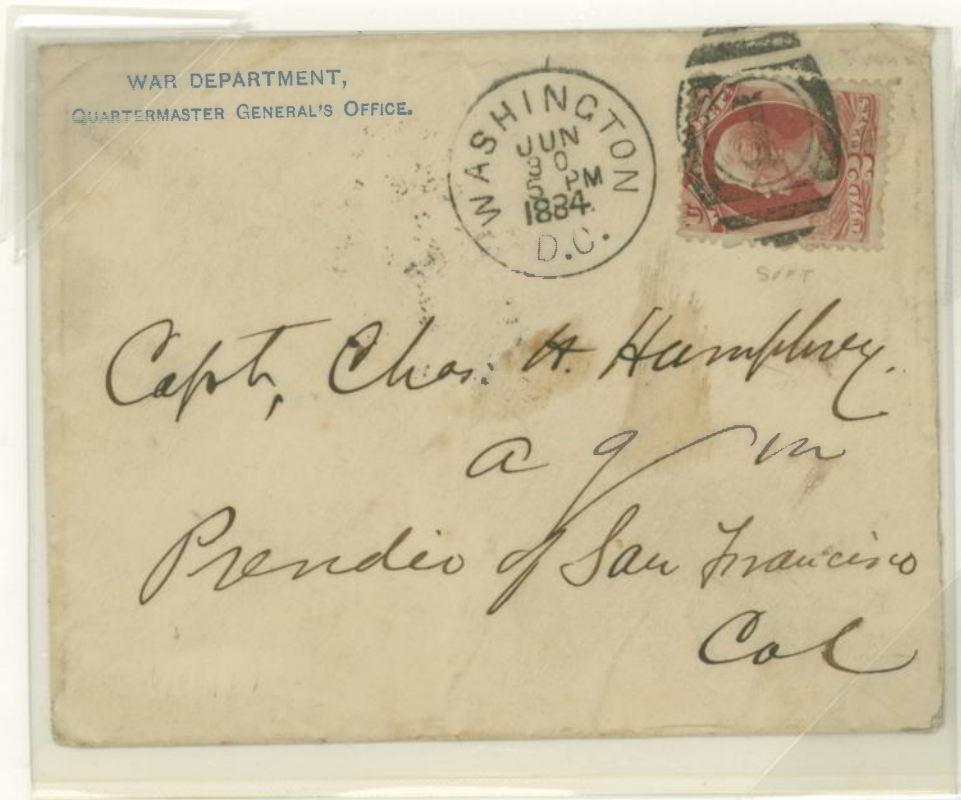 WAR DEPARTMENT,
QUARTERMASTER GENERAL'S OFFICE.
WASHINGTON
JUN
30
5 PM
1884
D.C.
Capt, Chas. H. Humphrey.
a q m
Presidio of San Francisco
Cal